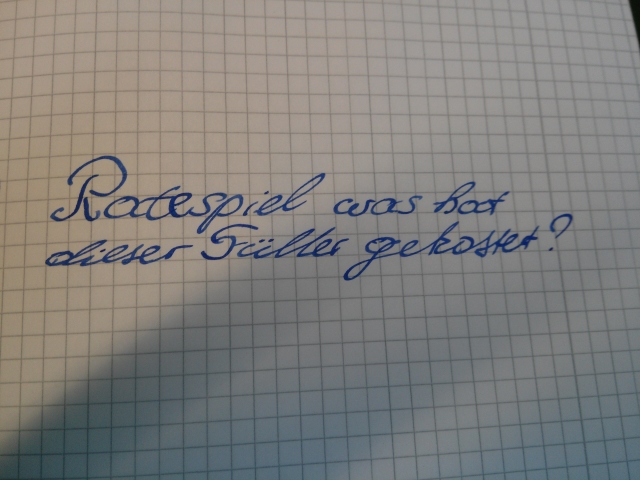 Ratespiel was hat
dieser Füller gekostet?